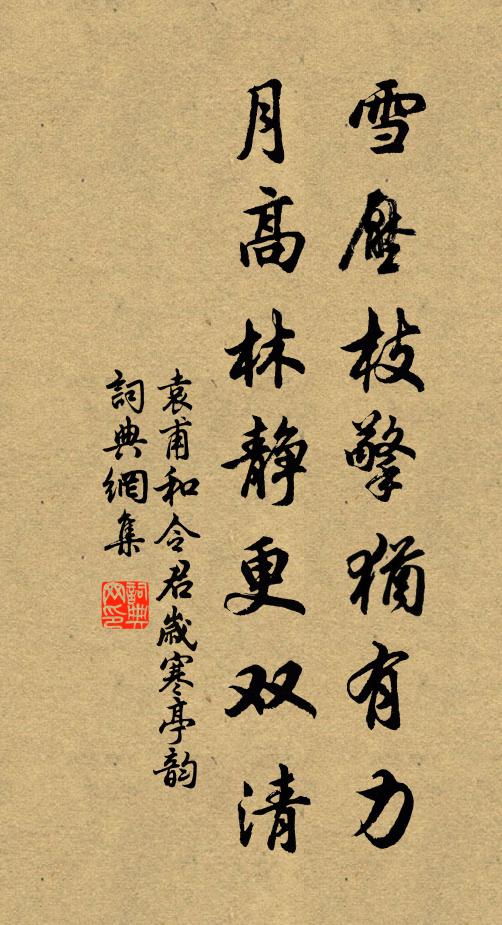 雪壓枝擎猶有力
月高林静更双清
袁甫和令君歲寒亭韵
詞典網集
詞典網印